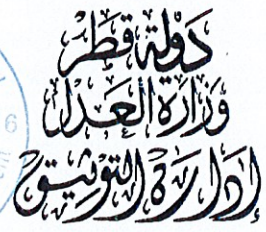 دَوْلَة قَطَر
وَزَارَة العَدل
إدَارَة التَّوثِيق